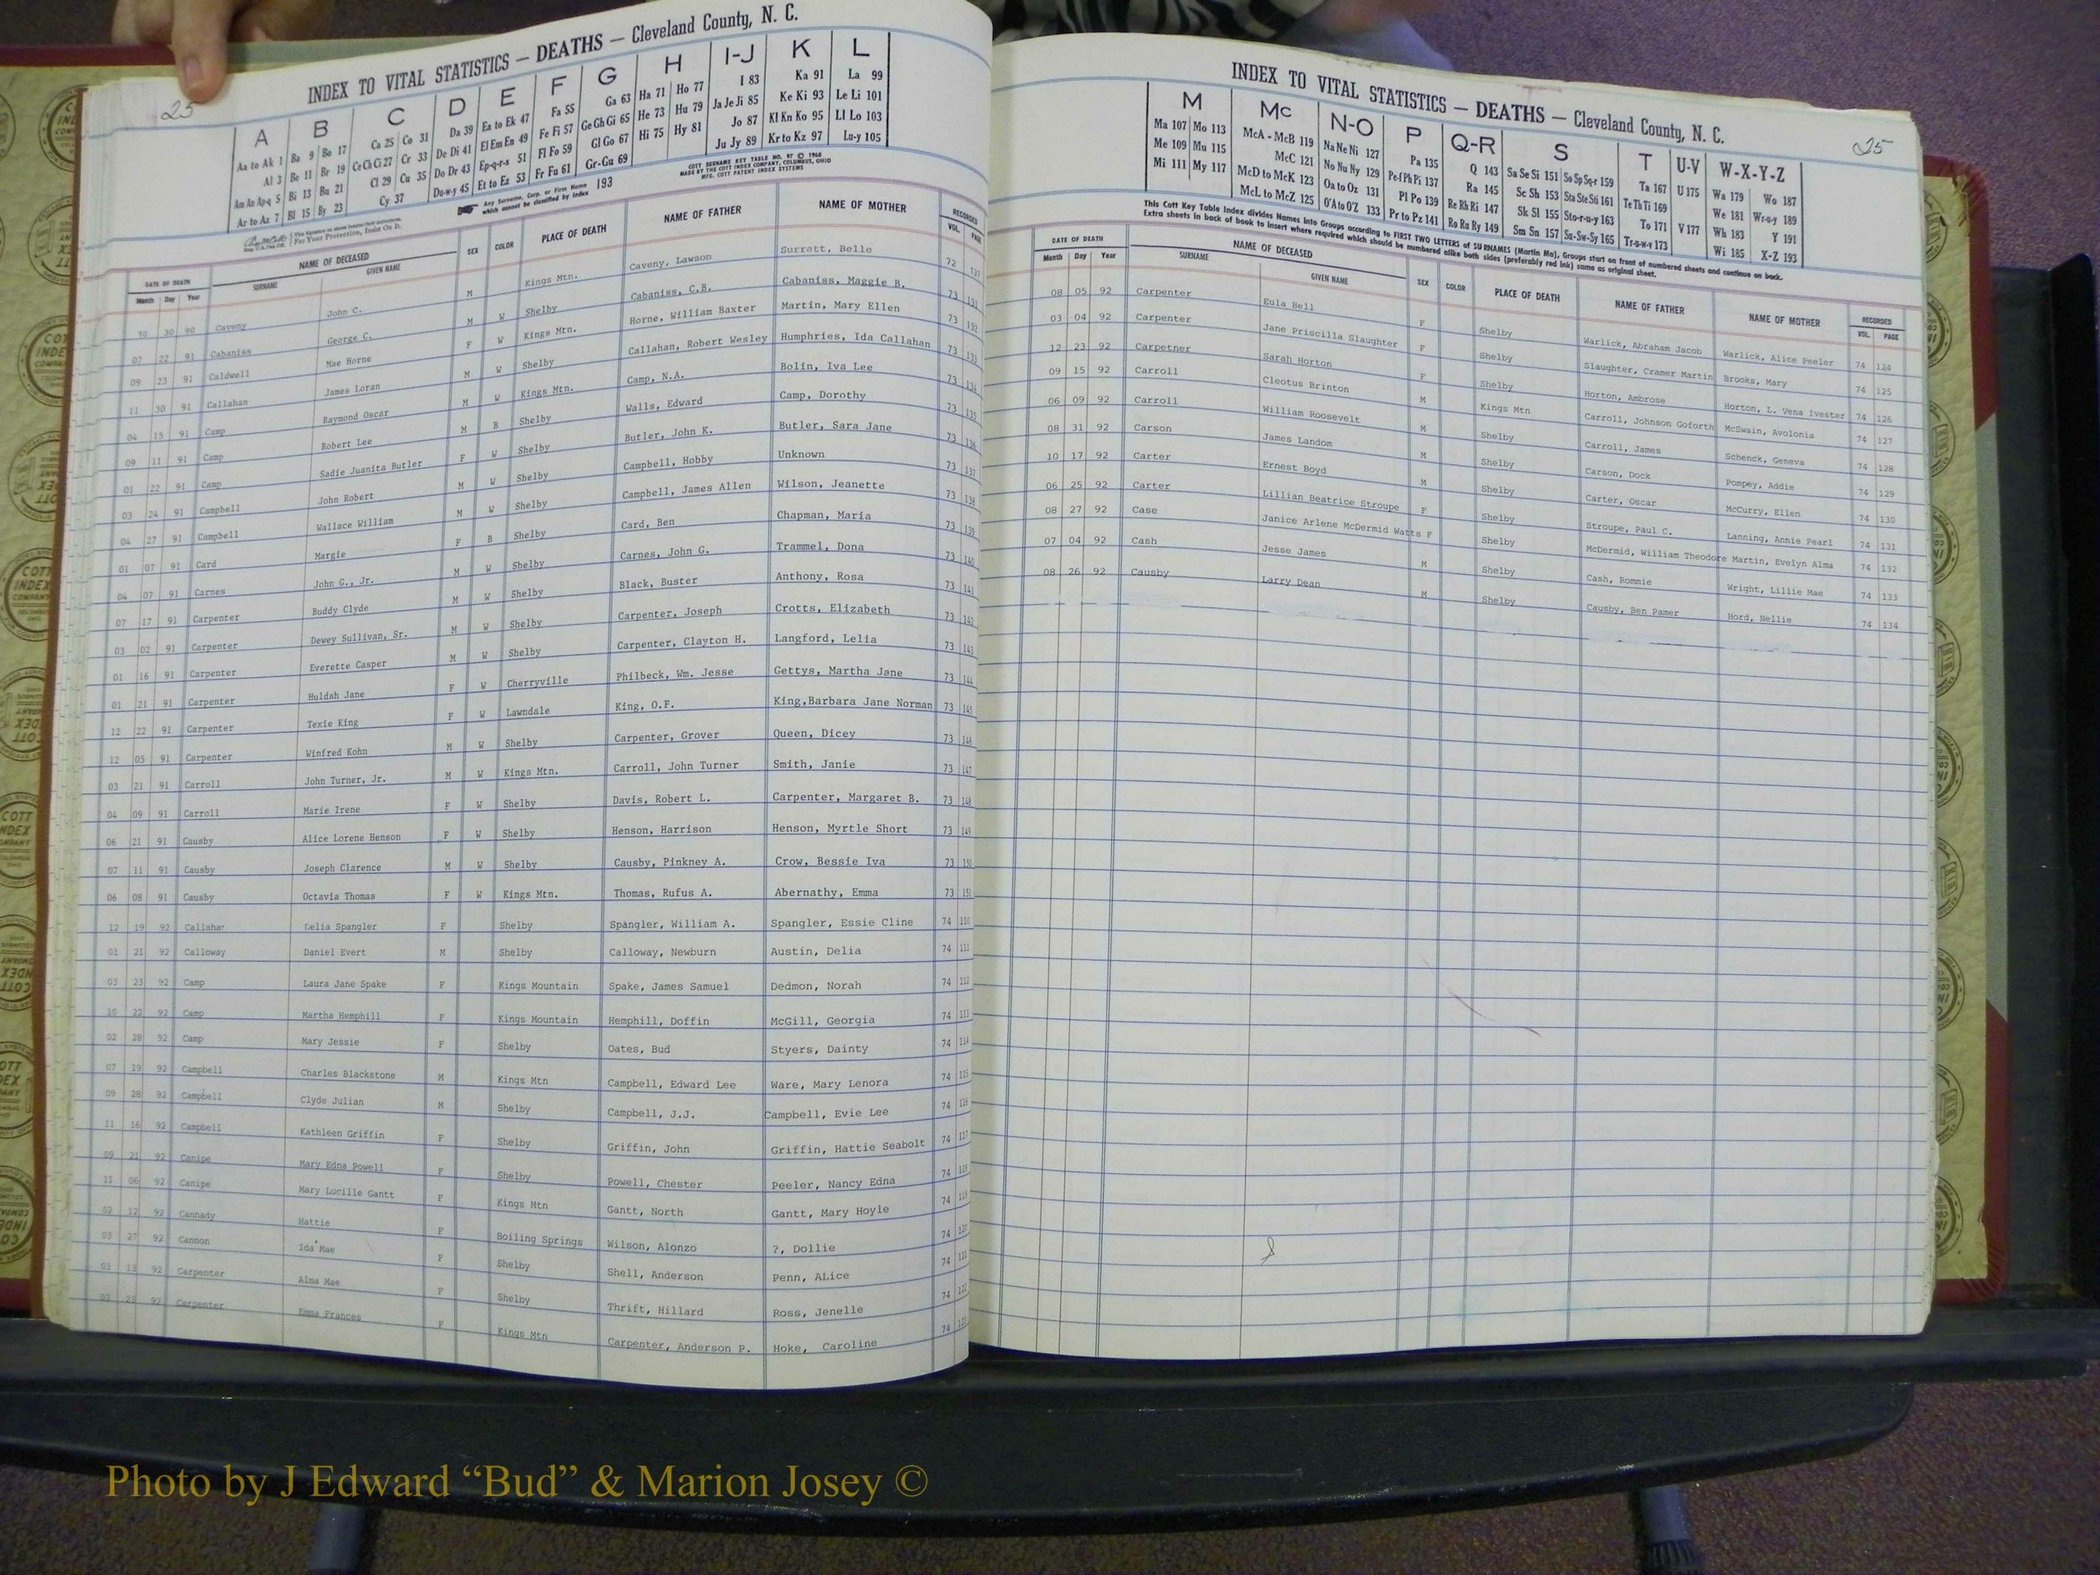 25
INDEX TO VITAL STATISTICS — DEATHS — Cleveland County, N. C.
A B C D E F G H I-J K L
Aa to Ak 1 Ba 9 Bo 17 Ca 25 Co 31 Da 39 Ea to Ek 47 Fa 55 Ga 63 Ha 71 Ho 77 I 83 Ka 91 La 99
Al 3 Be 11 Br 19 Ce Ch Ci 27 Cr 33 De Di 41 El Em En 49 Fe Fi 57 Ge Gh Gi 65 He 73 Hu 79 Ja Je Ji 85 Ke Ki 93 Le Li 101
Am An Ap-q 5 Bi 13 Bu 21 Cl 29 Cu 35 Do Dr 43 Ep-q-r-s 51 Fl Fo 59 Gl Go 67 Hi 75 Hy 81 Jo 87 Kl Kn Ko 95 Ll Lo 103
Ar to Az 7 Bl 15 By 23 Cy 37 Du-w-y 45 Et to Ez 53 Fr Fu 61 Gr-Gu 69 Ju Jy 89 Kr to Kz 97 Lu-y 105
For Your Protection, Insist On It.
Any Surname, Corp. or Firm Name which cannot be classified by Index 193
COTT SURNAME KEY TABLE NO. 97 © 1960
MADE BY THE COTT INDEX COMPANY, COLUMBUS, OHIO
MFG. COTT PATENT INDEX SYSTEMS
DATE OF DEATH NAME OF DECEASED SEX COLOR PLACE OF DEATH NAME OF FATHER NAME OF MOTHER RECORDED
Month Day Year SURNAME GIVEN NAME VOL. PAGE
10 30 90 Caveny John C. M Kings Mtn. Caveny, Lawson Surratt, Belle 72
07 22 91 Cabaniss George C. M W Shelby Cabaniss, C.B. Cabaniss, Maggie B. 73 131
09 23 91 Caldwell Mae Horne F W Kings Mtn. Horne, William Baxter Martin, Mary Ellen 73 132
11 30 91 Callahan James Loran M W Shelby Callahan, Robert Wesley Humphries, Ida Callahan 73 133
04 15 91 Camp Raymond Oscar M W Kings Mtn. Camp, N.A. Bolin, Iva Lee 73 134
09 11 91 Camp Robert Lee M B Shelby Walls, Edward Camp, Dorothy 73 135
01 22 91 Camp Sadie Juanita Butler F W Shelby Butler, John K. Butler, Sara Jane 73 136
03 24 91 Campbell John Robert M W Shelby Campbell, Hobby Unknown 73 137
04 27 91 Campbell Wallace William M W Shelby Campbell, James Allen Wilson, Jeanette 73 138
01 07 91 Card Margie F B Shelby Card, Ben Chapman, Maria 73 139
04 07 91 Carnes John G., Jr. M W Shelby Carnes, John G. Trammel, Dona 73 140
07 17 91 Carpenter Buddy Clyde M W Shelby Black, Buster Anthony, Rosa 73 141
03 02 91 Carpenter Dewey Sullivan, Sr. M W Shelby Carpenter, Joseph Crotts, Elizabeth 73 142
01 16 91 Carpenter Everette Casper M W Shelby Carpenter, Clayton H. Langford, Lelia 73 143
01 21 91 Carpenter Huldah Jane F W Cherryville Philbeck, Wm. Jesse Gettys, Martha Jane 73 144
12 22 91 Carpenter Texie King F W Lawndale King, O.F. King,Barbara Jane Norman 73 145
12 05 91 Carpenter Winfred Kohn M W Shelby Carpenter, Grover Queen, Dicey 73 146
03 21 91 Carroll John Turner, Jr. M W Kings Mtn. Carroll, John Turner Smith, Janie 73 147
04 09 91 Carroll Marie Irene F W Shelby Davis, Robert L. Carpenter, Margaret B. 73 148
06 21 91 Causby Alice Lorene Henson F W Shelby Henson, Harrison Henson, Myrtle Short 73 149
07 11 91 Causby Joseph Clarence M W Shelby Causby, Pinkney A. Crow, Bessie Iva 73 150
06 08 91 Causby Octavia Thomas F W Kings Mtn. Thomas, Rufus A. Abernathy, Emma 73 151
12 19 92 Callahan Lelia Spangler F Shelby Spangler, William A. Spangler, Essie Cline 74 110
01 21 92 Calloway Daniel Evert M Shelby Calloway, Newburn Austin, Delia 74 111
03 23 92 Camp Laura Jane Spake F Kings Mountain Spake, James Samuel Dedmon, Norah 74 112
10 22 92 Camp Martha Hemphill F Kings Mountain Hemphill, Doffin McGill, Georgia 74 113
02 28 92 Camp Mary Jessie F Shelby Oates, Bud Styers, Dainty 74 114
07 19 92 Campbell Charles Blackstone M Kings Mtn Campbell, Edward Lee Ware, Mary Lenora 74 115
09 28 92 Campbell Clyde Julian M Shelby Campbell, J.J. Campbell, Evie Lee 74 116
11 16 92 Campbell Kathleen Griffin F Shelby Griffin, John Griffin, Hattie Seabolt 74 117
09 21 92 Canipe Mary Edna Powell F Shelby Powell, Chester Peeler, Nancy Edna 74 118
11 06 92 Canipe Mary Lucille Gantt F Kings Mtn Gantt, North Gantt, Mary Hoyle 74 119
02 12 92 Cannady Hattie F Boiling Springs Wilson, Alonzo ?, Dollie 74 120
03 27 92 Cannon Ida Mae F Shelby Shell, Anderson Penn, ALice 74 121
03 13 92 Carpenter Alma Mae F Shelby Thrift, Hillard Ross, Jenelle 74 122
03 23 92 Carpenter Emma Frances F Kings Mtn Carpenter, Anderson P. Hoke, Caroline 74 123
INDEX TO VITAL STATISTICS — DEATHS — Cleveland County, N. C.
25
M Mc N-O P Q-R S T U-V W-X-Y-Z
Ma 107 Mo 113 McA - McB 119 Na Ne Ni 127 Pa 135 Q 143 Sa Se Si 151 So Sp Sq-r 159 Ta 167 U 175 Wa 179 Wo 187
Me 109 Mu 115 McC 121 No Nu Ny 129 Pe-f Ph Pi 137 Ra 145 Sc Sh 153 Sta Ste Sti 161 Te Th Ti 169 We 181 Wr-u-y 189
Mi 111 My 117 McD to McK 123 Oa to Oz 131 Pl Po 139 Re Rh Ri 147 Sk Sl 155 Sto-r-u-y 163 To 171 V 177 Wh 183 Y 191
McL to McZ 125 O'A to O'Z 133 Pr to Pz 141 Ro Ru Ry 149 Sm Sn 157 Su-Sw-Sy 165 Tr-u-w-y 173 Wi 185 X-Z 193
This Cott Key Table Index divides Names into Groups according to FIRST TWO LETTERS of SURNAMES (Martin Ma), Groups start on front of numbered sheets and continue on back.
Extra sheets in back of book to insert where required which should be numbered alike both sides (preferably red ink) same as original sheet.
DATE OF DEATH NAME OF DECEASED SEX COLOR PLACE OF DEATH NAME OF FATHER NAME OF MOTHER RECORDED
Month Day Year SURNAME GIVEN NAME VOL. PAGE
08 05 92 Carpenter Eula Bell F Shelby Warlick, Abraham Jacob Warlick, Alice Peeler 74 124
03 04 92 Carpenter Jane Priscilla Slaughter F Shelby Slaughter, Cramer Martin Brooks, Mary 74 125
12 23 92 Carpetner Sarah Horton F Shelby Horton, Ambrose Horton, L. Vena Ivester 74 126
09 15 92 Carroll Cleotus Brinton M Kings Mtn Carroll, Johnson Goforth McSwain, Avolonia 74 127
06 09 92 Carroll William Roosevelt M Shelby Carroll, James Schenck, Geneva 74 128
08 31 92 Carson James Landom M Shelby Carson, Dock Pompey, Addie 74 129
10 17 92 Carter Ernest Boyd M Shelby Carter, Oscar McCurry, Ellen 74 130
06 25 92 Carter Lillian Beatrice Stroupe F Shelby Stroupe, Paul C. Lanning, Annie Pearl 74 131
08 27 92 Case Janice Arlene McDermid Watts F Shelby McDermid, William Theodore Martin, Evelyn Alma 74 132
07 04 92 Cash Jesse James M Shelby Cash, Rommie Wright, Lillie Mae 74 133
08 26 92 Causby Larry Dean M Shelby Causby, Ben Pamer Hord, Nellie 74 134
Photo by J Edward “Bud” & Marion Josey ©